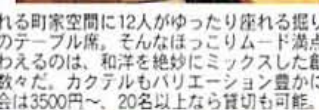 れる町家空間に12人がゆったり座れる掘り
のテーブル席。そんなほっこりムード満点
わえるのは、和洋を絶妙にミックスした創
数々だ。カクテルもバリエーション豊かに
会は3500円〜、20名以上なら貸切も可能。